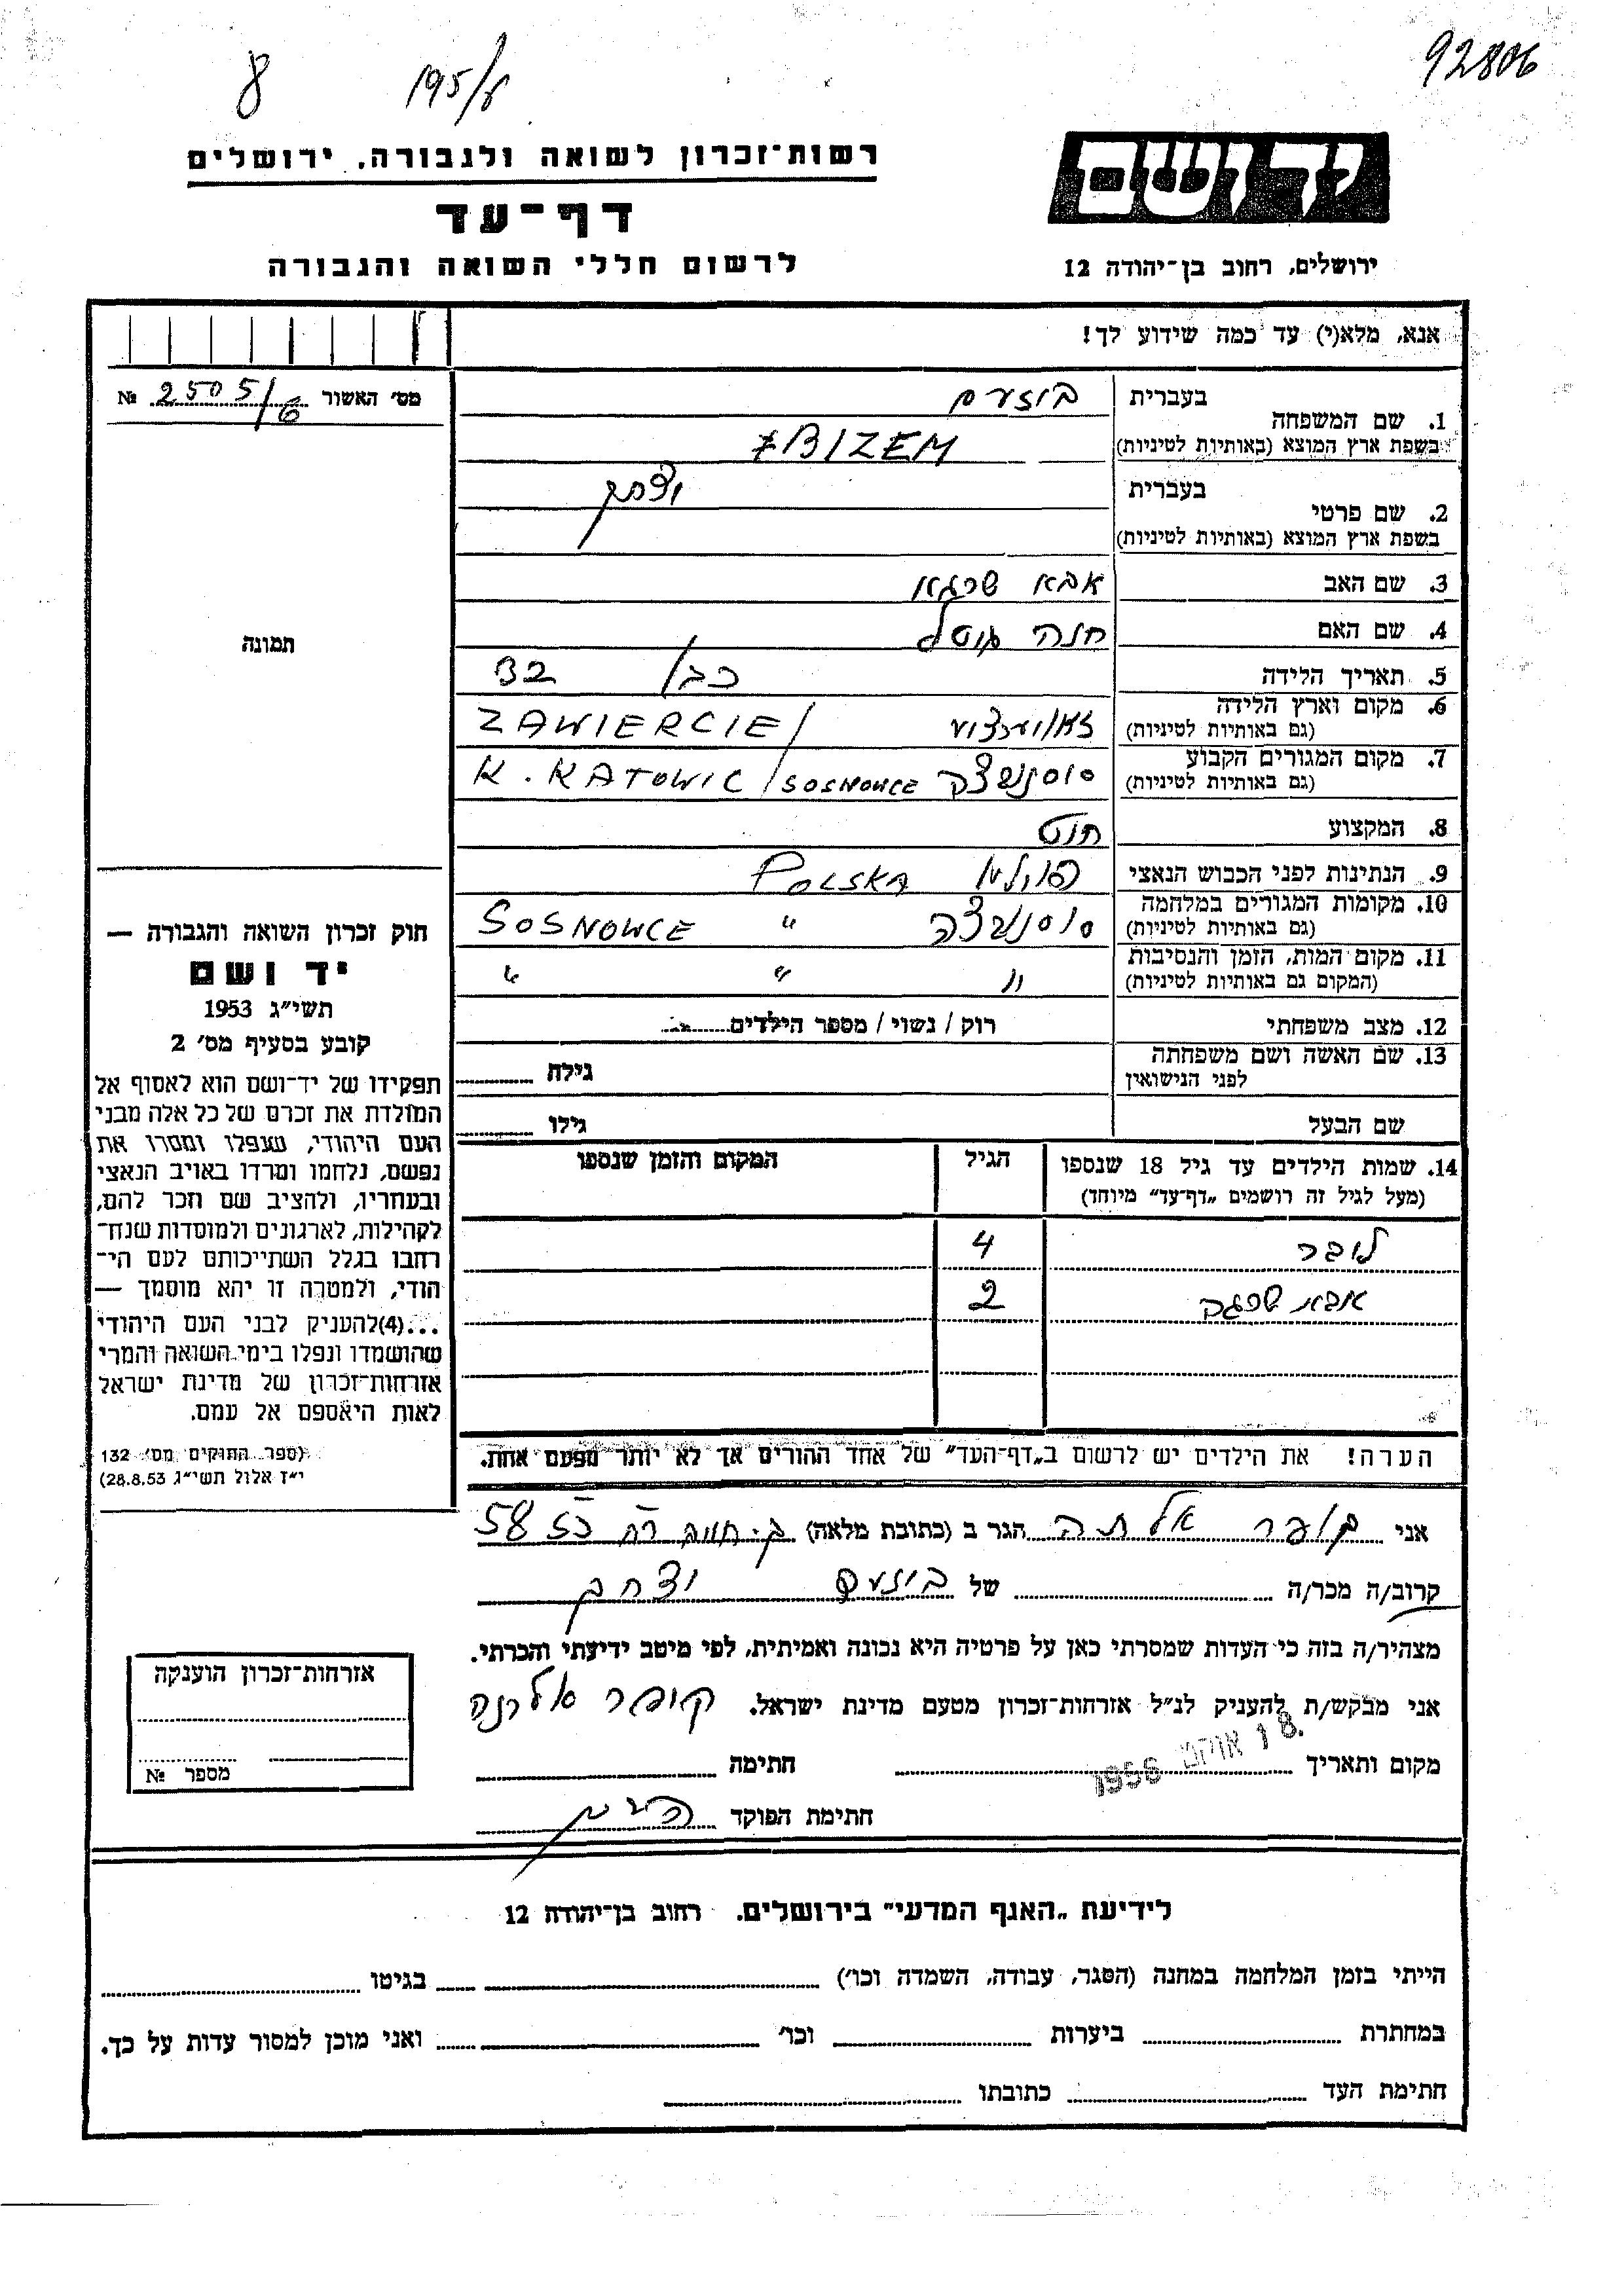 92806
195/ע
8
יד ושם
ירושלים, רחוב בן־יהודה 12
רשות־זכרון לשואה ולגבורה, ירושלים
דף־עד
לרשום חללי השואה והגבורה
אנא, מלא(י) עד כמה שידוע לך!
מס׳ האשור 2505/6 №
תמונה
1. שם המשפחה
בעברית ביזעם
בשפת ארץ המוצא (באותיות לטיניות) BIZEM
2. שם פרטי
בעברית יצחק
בשפת ארץ המוצא (באותיות לטיניות)
3. שם האב אבא שרגא
4. שם האם חנה גוטל
5. תאריך הלידה בן / 32
6. מקום וארץ הלידה
(גם באותיות לטיניות) ZAWIERCIE /
7. מקום המגורים הקבוע
(גם באותיות לטיניות) K. KATOWIC / SOSNOWCE
8. המקצוע
9. הנתינות לפני הכבוש הנאצי POLSKA
10. מקומות המגורים במלחמה
(גם באותיות לטיניות) " SOSNOWCE
11. מקום המות, הזמן והנסיבות
(המקום גם באותיות לטיניות) " " "
12. מצב משפחתי רוק / נשוי / מספר הילדים
13. שם האשה ושם משפחתה
לפני הנישואין
גילה
שם הבעל גילו
14. שמות הילדים עד גיל 18 שנספו
(מעל לגיל זה רושמים „דף־עד" מיוחד)
הגיל
המקום והזמן שנספו
4
אבא 2
הערה! את הילדים יש לרשום ב„דף־העד" של אחד ההורים אך לא יותר מפעם אחת.
חוק זכרון השואה והגבורה —
יד ושם
תשי״ג 1953
קובע בסעיף מס׳ 2
תפקידו של יד־ושם הוא לאסוף אל
המולדת את זכרם של כל אלה מבני
העם היהודי, שנפלו ומסרו את
נפשם, נלחמו ומרדו באויב הנאצי
ובעוזריו, ולהציב שם וזכר להם,
לקהילות, לארגונים ולמוסדות שנח־
רבו בגלל השתייכותם לעם הי־
הודי, ולמטרה זו יהא מוסמך —
...(4)להעניק לבני העם היהודי
שהושמדו ונפלו בימי השואה והמרי
אזרחות־זכרון של מדינת ישראל
לאות היאספם אל עמם.
(ספר החוקים מס׳ 132
י״ז אלול תשי״ג 28.8.53)
אני הגר ב (כתובת מלאה) 58
קרוב/ה מכר/ה של ביזעם יצחק
מצהיר/ה בזה כי העדות שמסרתי כאן על פרטיה היא נכונה ואמיתית, לפי מיטב ידיעתי והכרתי.
אני מבקש/ת להעניק לנ״ל אזרחות־זכרון מטעם מדינת ישראל.
מקום ותאריך 18 אוקט 1956 חתימה
חתימת הפוקד
אזרחות־זכרון הוענקה
מספר №
לידיעת „האגף המדעי" בירושלים. רחוב בן־יהודה 12
הייתי בזמן המלחמה במחנה (הסגר, עבודה, השמדה וכו׳) בגיטו
במחתרת ביערות וכו׳ ואני מוכן למסור עדות על כך.
חתימת העד כתובתו